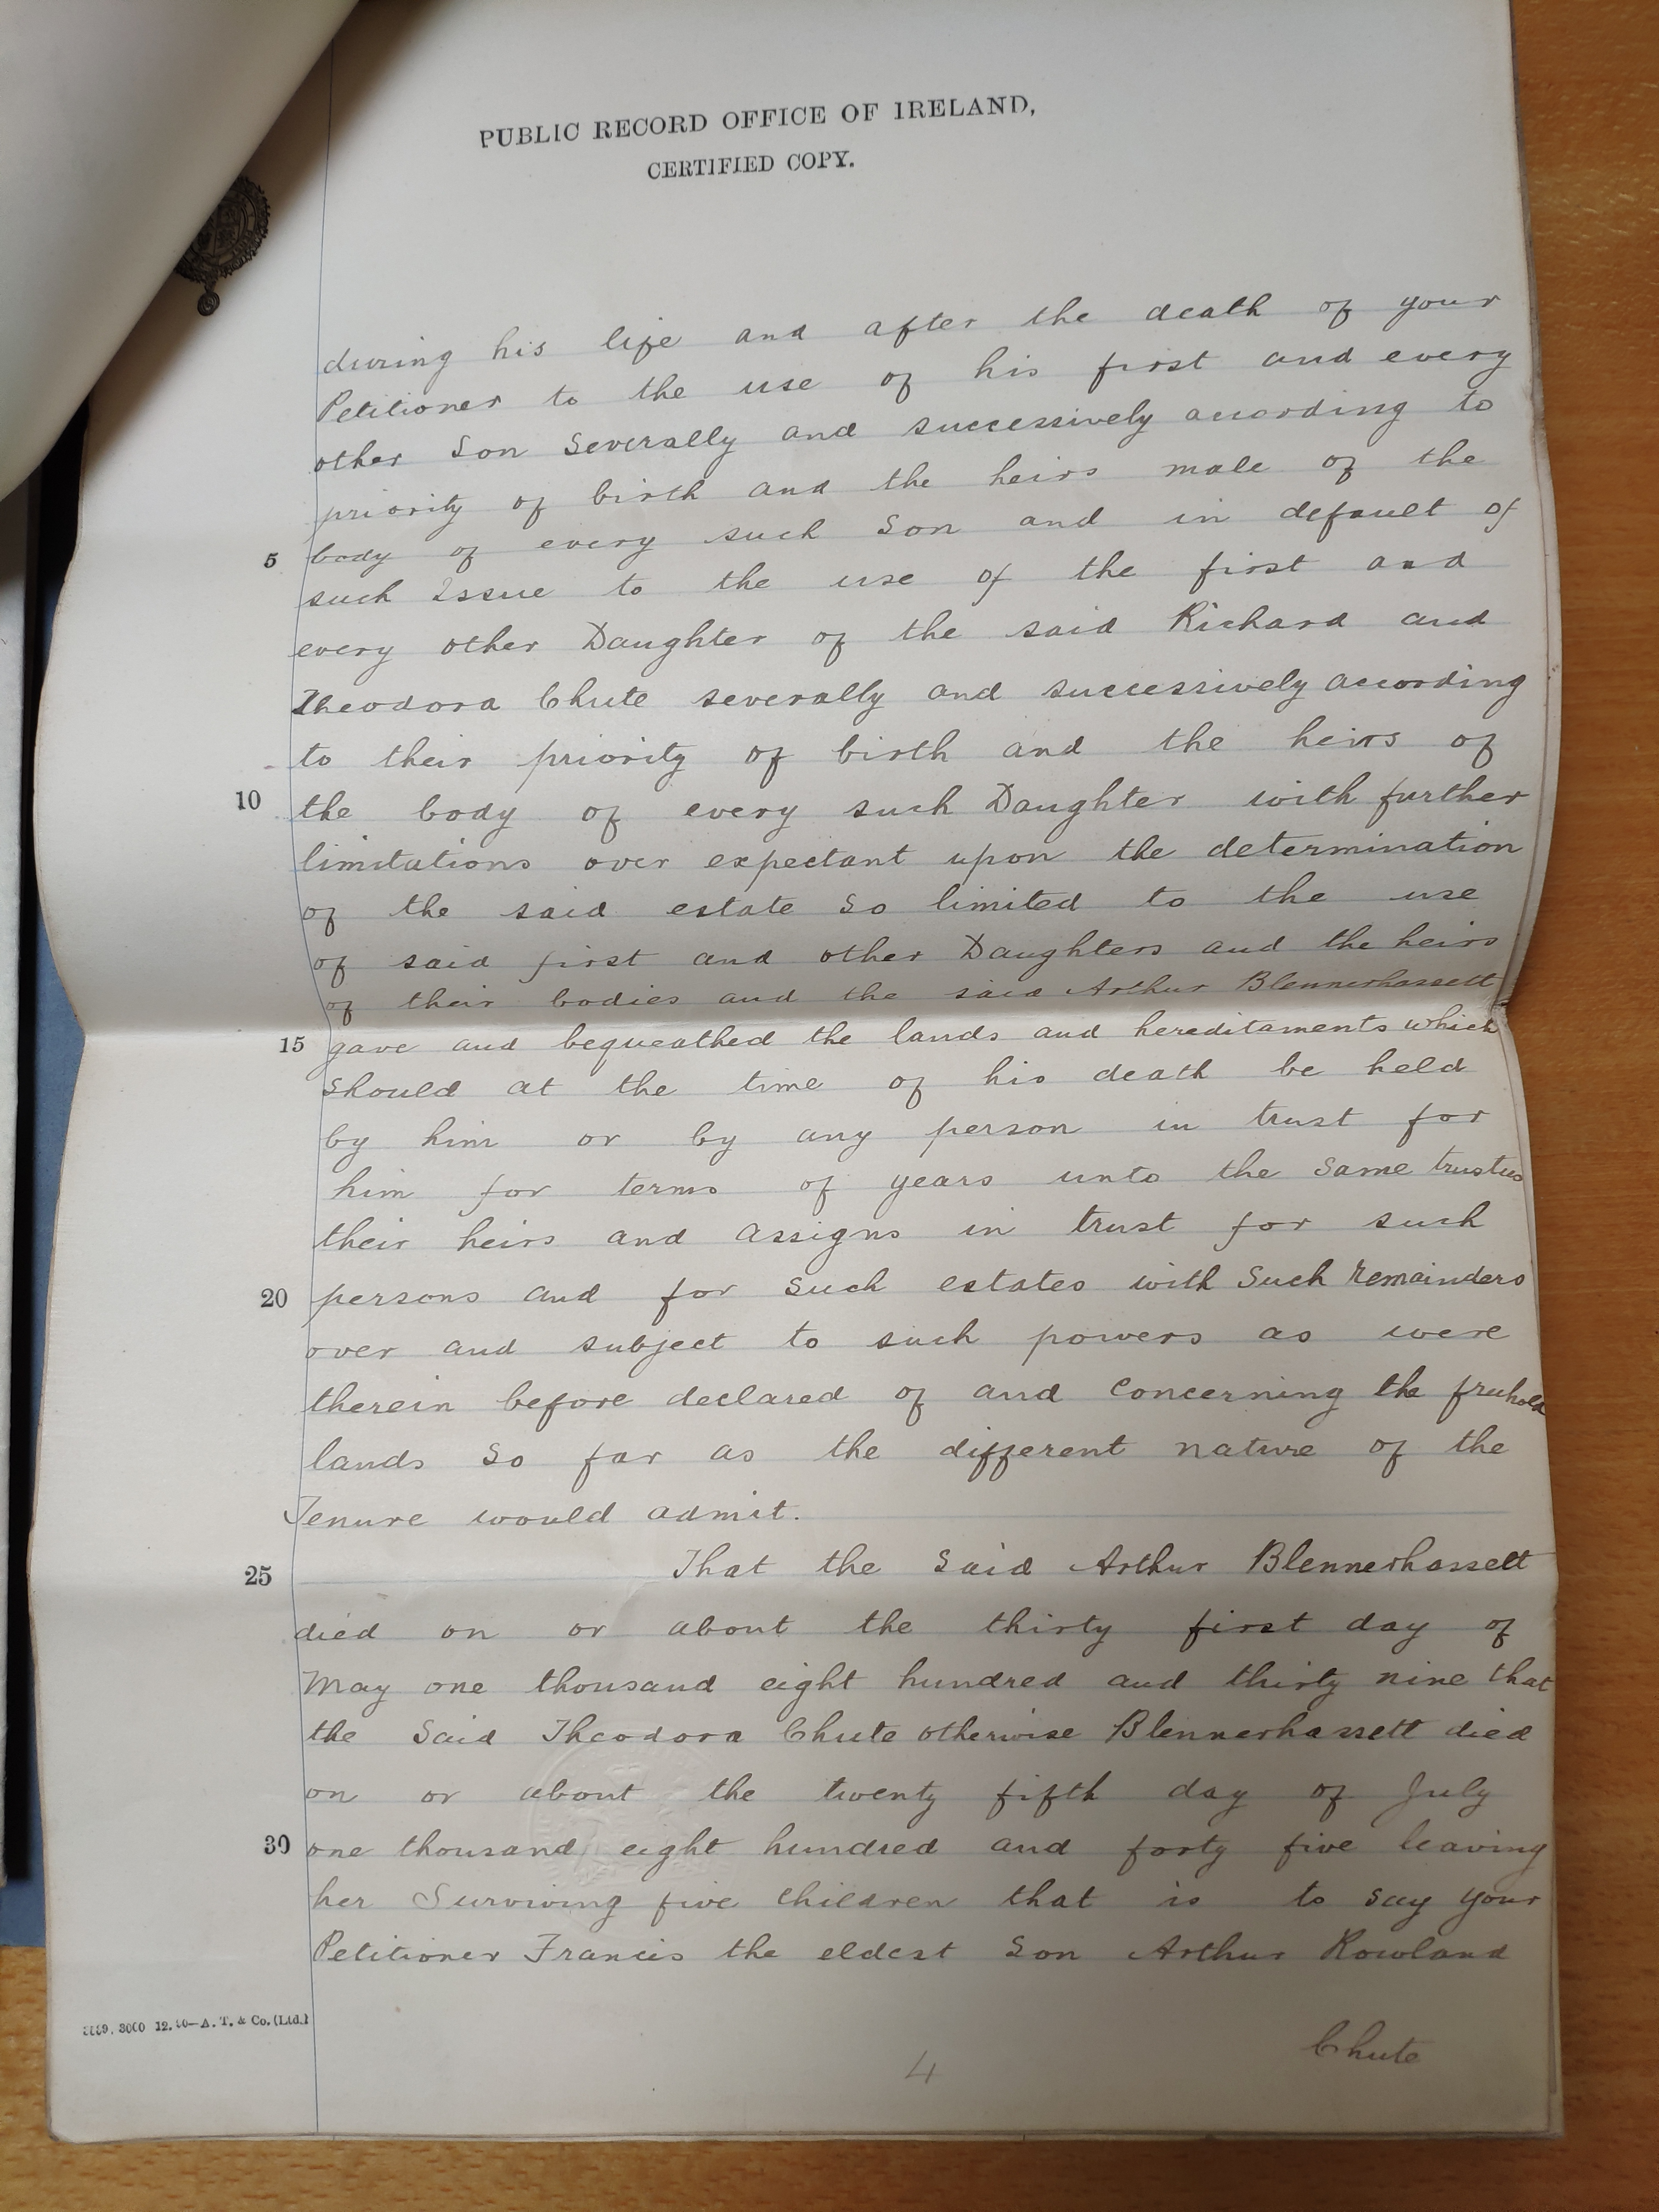 PUBLIC RECORD OFFICE OF IRELAND,
CERTIFIED COPY.
during his life and after the death of your
Petitioner to the use of his first and every
other Son Severally and successively according to
priority of birth and the heirs male of the
5 body of every such Son and in default of
such Issue to the use of the first and
every other Daughter of the said Richard and
Theodora Chute severally and successively according
to their priority of birth and the heirs of
10 the body of every such Daughter with further
limitations over expectant upon the determination
of the said estate so limited to the use
of said first and other Daughters and the heirs
of their bodies and the said Arthur Blennerhassett
15 gave and bequeathed the lands and hereditaments which
should at the time of his death be held
by him or by any person in trust for
him for terms of years unto the Same trustees
their heirs and assigns in trust for such
20 persons and for such estates with Such remainders
over and subject to such powers as were
therein before declared of and concerning the freehold
lands so far as the different nature of the
Tenure would admit.
25 That the Said Arthur Blennerhassett
died on or about the thirty first day of
May one thousand eight hundred and thirty nine that
the Said Theodora Chute otherwise Blennerhassett died
on or about the twenty fifth day of July
30 one thousand eight hundred and forty five leaving
her Surviving five Children that is to say your
Petitioner Francis the eldest Son Arthur Rowland
3000 12. A. T. & Co. (Ltd.)
Chute
4